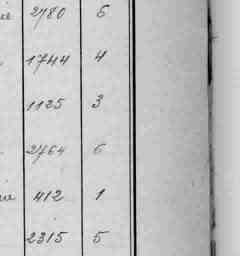 2780 6
1744 4
1125 3
2764 6
412 1
2315 5